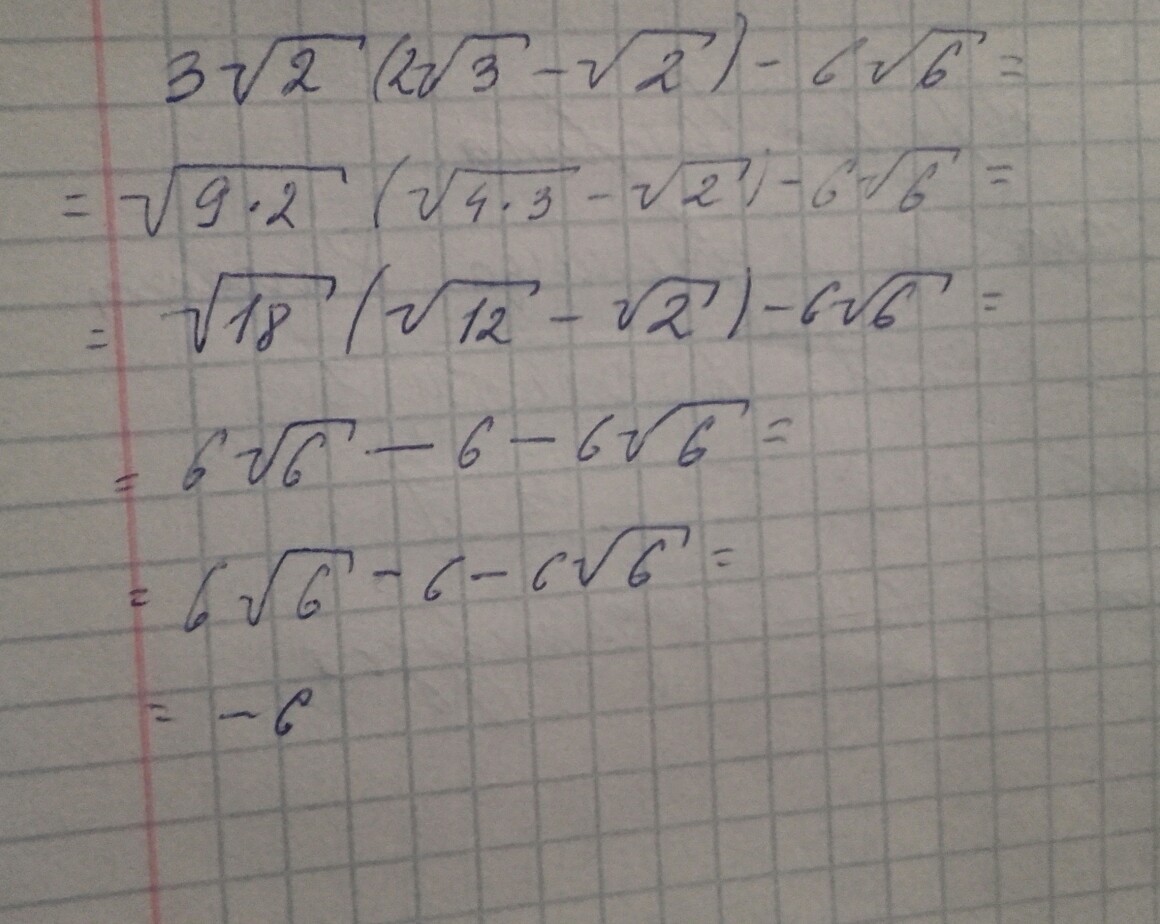 3√2 (2√3 - √2) - 6√6 =
= √9·2 (√4·3 - √2) - 6√6 =
= √18 (√12 - √2) - 6√6 =
= 6√6 - 6 - 6√6 =
= 6√6 - 6 - 6√6 =
= - 6